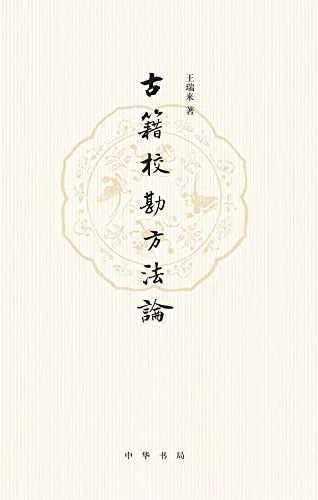 王瑞来 著
古籍校勘方法論
中华书局